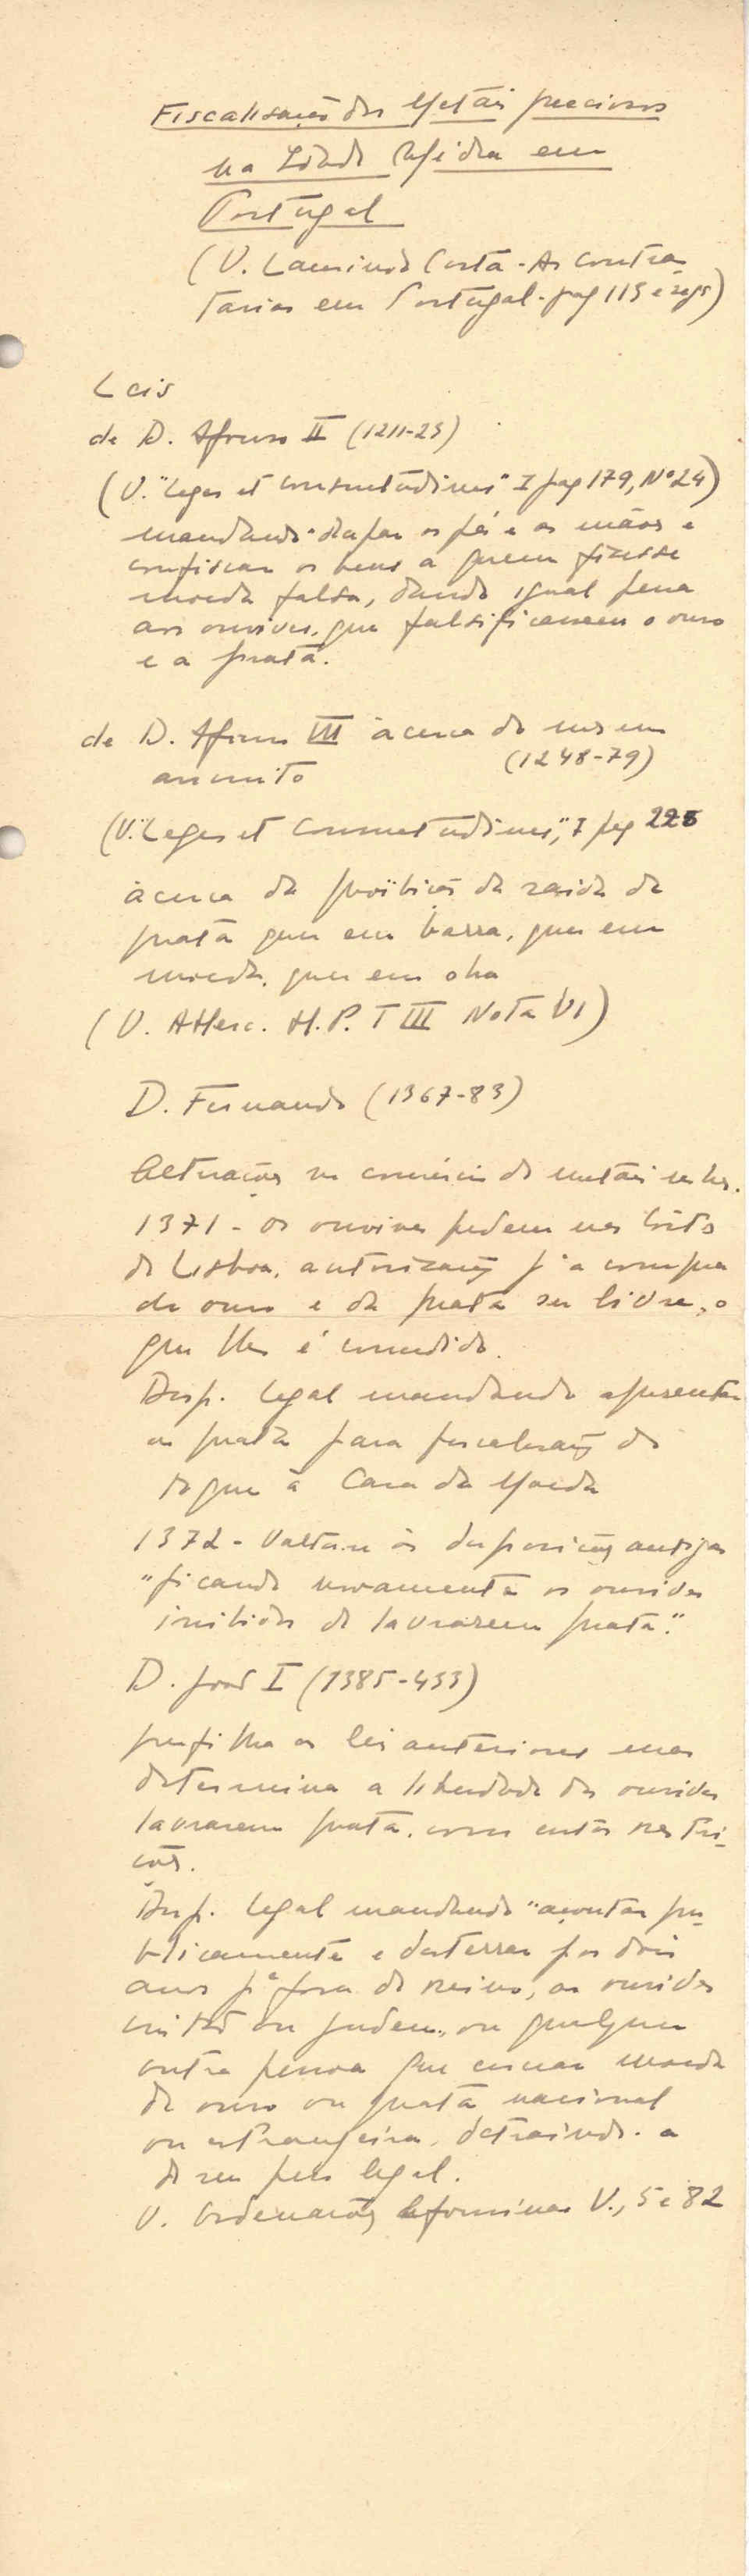 Fiscalisação dos Metais preciosos
na Idade Média em
Portugal
(V. Laurindo Costa - As contras-
tarias em Portugal - pag 113 e segs)
Leis
de D. Afonso II (1211-23)
(V. "Leges et Consuetudines" I pag 179, Nº 24)
mandando decepar os pés e as mãos e
confiscar os bens a quem fizesse
moeda falsa, dando igual pena
aos ourives, que falsificassem o ouro
e a prata.
de D. Afonso III àcerca do mesmo
assunto (1248-79)
(V. "Leges et Consuetudines", I pag 225
àcerca da proïbição da saida da
prata quer em barra, quer em
moeda, quer em obra
(V. A Herc. H.P. T III Nota VI)
D. Fernando (1367-83)
Alterações no comércio de metais nobres.
1371 - os ourives pedem nas Côrtes
de Lisboa, autorização p.ª a compra
de ouro e da prata ser livre, o
que lhes é concedido.
Disp. legal mandando apresentar
a prata para fiscalização do
toque à Casa da Moeda
1372 - Voltam às disposições antigas
"ficando novamente os ourives
inibidos de lavrarem prata."
D. João I (1385-433)
perfilha as leis anteriores mas
determina a liberdade dos ourives
lavrarem prata, com certas restri-
ções.
Disp. legal mandando "açoutar pu-
blicamente e desterrar por dois
anos pª fora do reino, os ourives
cristão ou judeu, ou qualquer
outra pessoa que cercear moeda
de ouro ou prata nacional
ou estrangeira, detraindo-a
do seu peso legal.
V. Ordenações Afonsinas V., 5 e 82